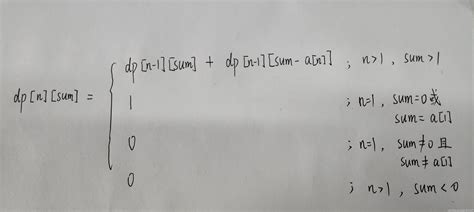 dp[n-1][sum] + dp[n-1][sum-a[n]] ; n>1, sum>1
dp[n][sum] =
1 ; n=1, sum=0或
sum=a[1]
0 ; n=1, sum≠0且
sum≠a[1]
0 ; n>1, sum<0